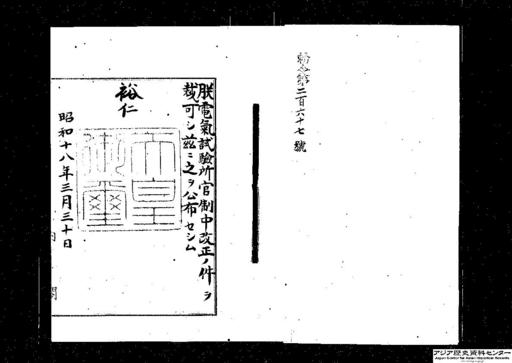 勅令第二百六十七號
朕電氣試驗所官制中改正ノ件ヲ
裁可シ茲ニ之ヲ公布セシム
裕仁
天皇
御璽
昭和十八年三月三十日
内閣
アジア歴史資料センター
Japan Center for Asian Historical Records